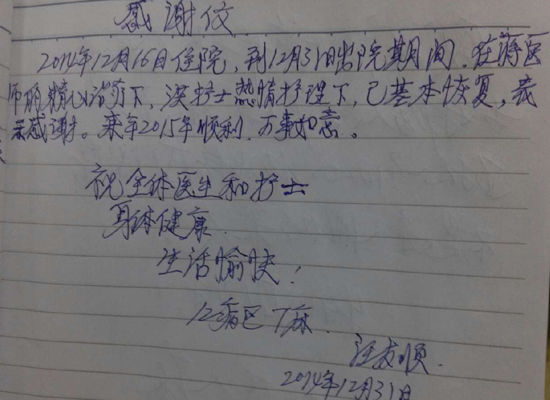 感谢仪
2014年12月16日住院,到12月31日出院期间.在蒋医
师的精心治疗下,溪护士热情护理下,已基本恢复,表
示感谢。来年2015年顺利.万事如意。
祝全体医生和护士
身体健康.
生活愉快!
12病区丁床.
汪友顺.
2014年12月31日